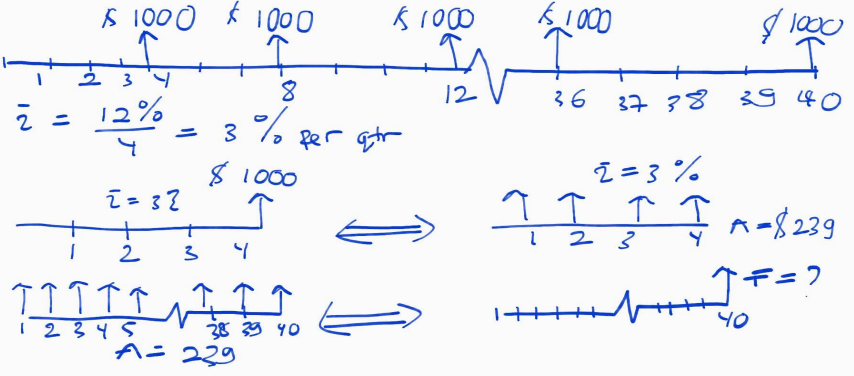 $ 1000 $ 1000 $ 1000 $ 1000 $ 1000
1 2 3 4 8 12 36 37 38 39 40
i = 12% / 4 = 3 % per qtr
$ 1000
i = 3%
1 2 3 4
i = 3 %
1 2 3 4 A = $239
1 2 3 4 5 38 39 40
A = 239
F = ?
1 40